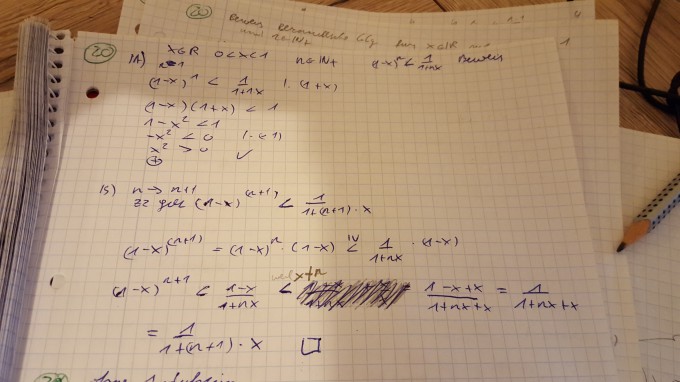 20
Beweis Bernoullische Glg. für x∈ℝ und
n∈ℕ+
20 IA) x∈ℝ 0<x<1 n∈ℕ+ (1-x)^n < 1/(1+nx) Beweis
n=1
(1-x)^1 < 1/(1+1x) |·(1+x)
(1-x)(1+x) < 1
1-x² < 1
-x² < 0 |·(-1)
x² > 0 ✓
IS) n → n+1
zz (1-x)^(n+1) < 1/(1+(n+1)·x)
(1-x)^(n+1) = (1-x)^n · (1-x) <^IV 1/(1+nx) · (1-x)
(1-x)^n+1 < (1-x)/(1+nx) < (1-x+x)/(1+nx+x) = 1/(1+nx+x)
= 1/(1+(n+1)·x) □